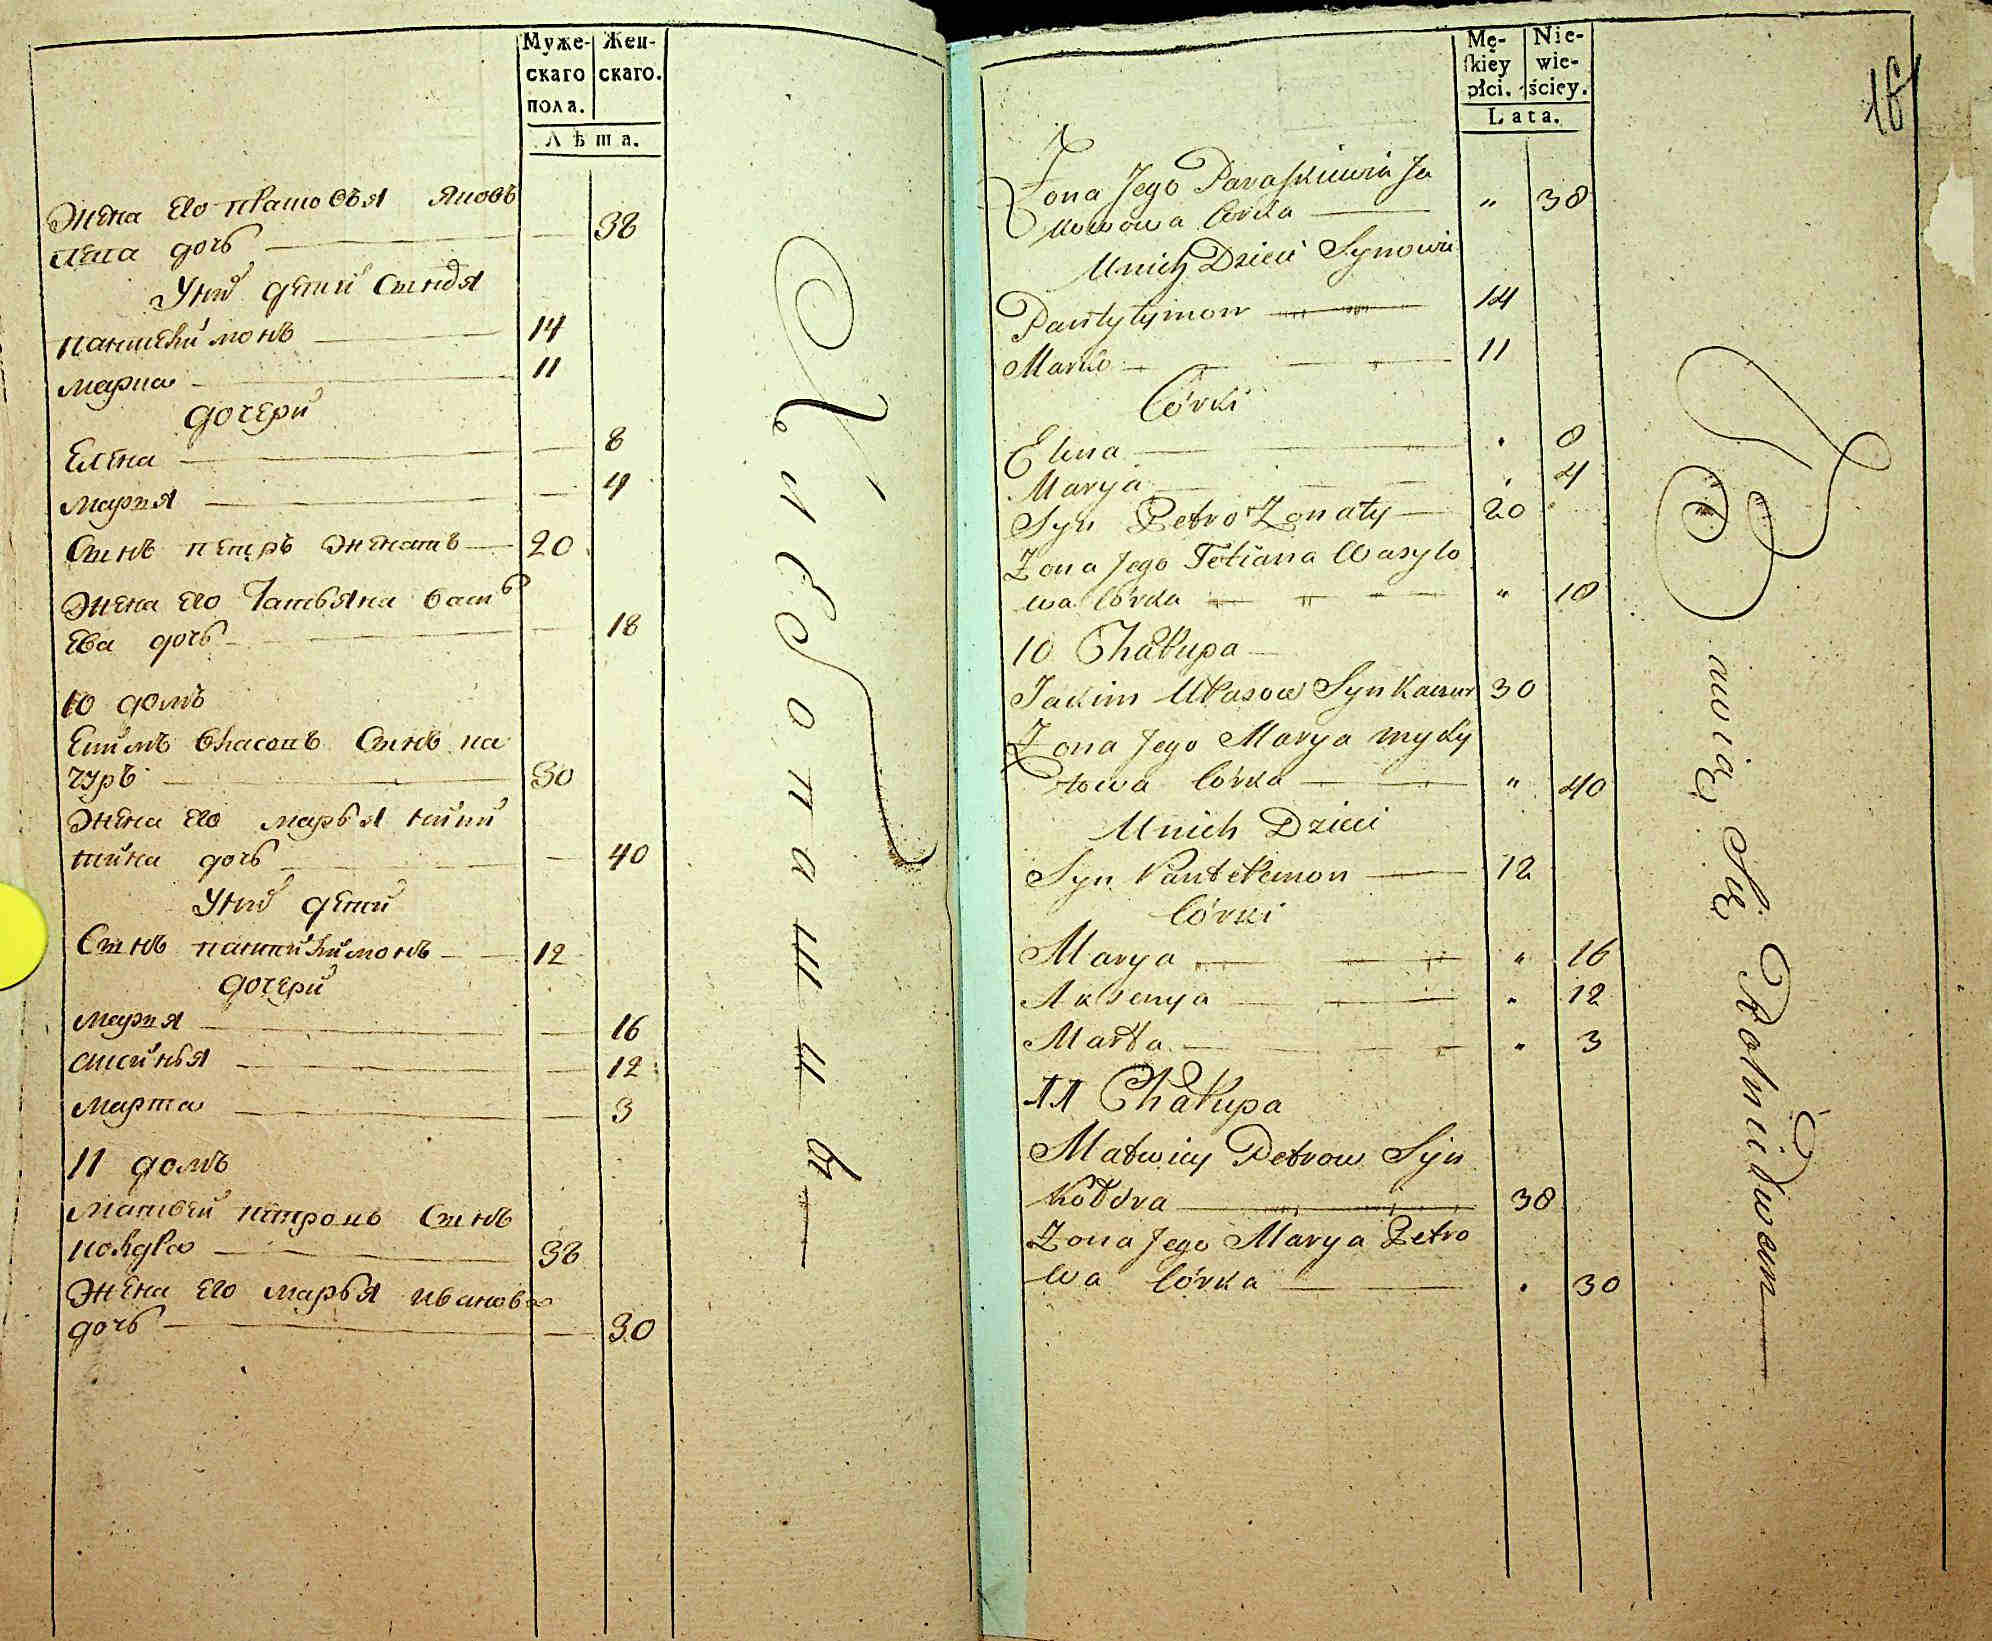 Муже-
скаго
пола.
Жен-
скаго.
Лѣта.
Жена его Яковъ
лева дочь 38
У них детей Сыновя
Пантелимонъ 14
Марко 11
дочери
Елена 8
Мария 4
Сынъ Петръ женатъ 20
Жена его Татьяна васил
ева дочь 18
10 домъ
Екимъ Власовъ Сынъ ка
чуръ 30
Жена его Марья
дочь 40
У них детей
Сынъ Пантилимонъ 12
дочери
Мария 16
Аксинья 12
Марта 3
11 домъ
Матвей Петровъ Сынъ
колдра 38
Жена его Марья Иванова
дочь 30
Хлебопашцы
Mę-
skiey
płci.
Nie-
wie-
ściey.
Lata.
16
Zona Jego Paraskiewia Ja
kowowa Córka " 38
U nich Dzieci Synowie
Pantylymon 14
Marko 11
Córki
Elena " 8
Marya " 4
Syn Petro Zonaty 20
Zona Jego Tetiana Wasylo
wa Córka " 18
10 Chałupa
Jakim Ułasow Syn Kaczur 30
Zona Jego Marya Myky
towa Córka " 40
U nich Dzieci
Syn Pantełemon 12
Córki
Marya " 16
Aksenya " 12
Marta " 3
11 Chałupa
Matwiey Petrow Syn
Kołdra 38
Zona Jego Marya Petro
wa Córka " 30
Bawią Się Rolnictwem